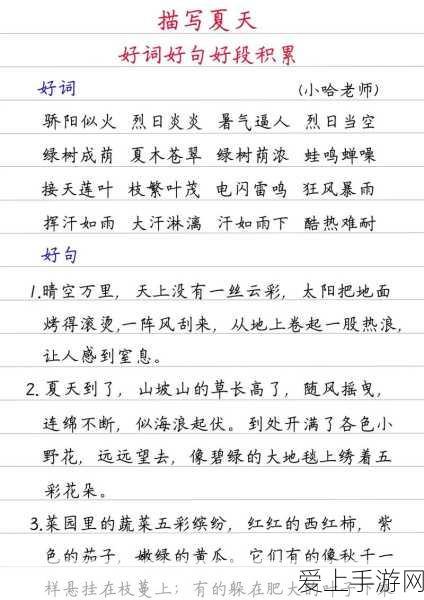 描写夏天
好词好句好段积累
好词 (小哈老师)
骄阳似火 烈日炎炎 暑气逼人 烈日当空
绿树成荫 夏木苍翠 绿树荫浓 蛙鸣蝉噪
接天莲叶 枝繁叶茂 电闪雷鸣 狂风暴雨
挥汗如雨 大汗淋漓 汗如雨下 酷热难耐
好句
1.晴空万里，天上没有一丝云彩，太阳把地面
烤得滚烫,一阵风刮来，从地上卷起一股热浪，
让人感到窒息。
2. 夏天到了，山坡山的草长高了，随风摇曳，
连绵不断，似海浪起伏。到处开满了各色小
野花，远远望去，像碧绿的大地毯上绣着五
彩花朵。
3.菜园里的蔬菜五彩缤纷，红红的西红柿，紫
色的茄子，嫩绿的黄瓜。它们有的像秋千一
样悬挂在枝蔓上；有的躲在肥大的叶子下
爱上手游网